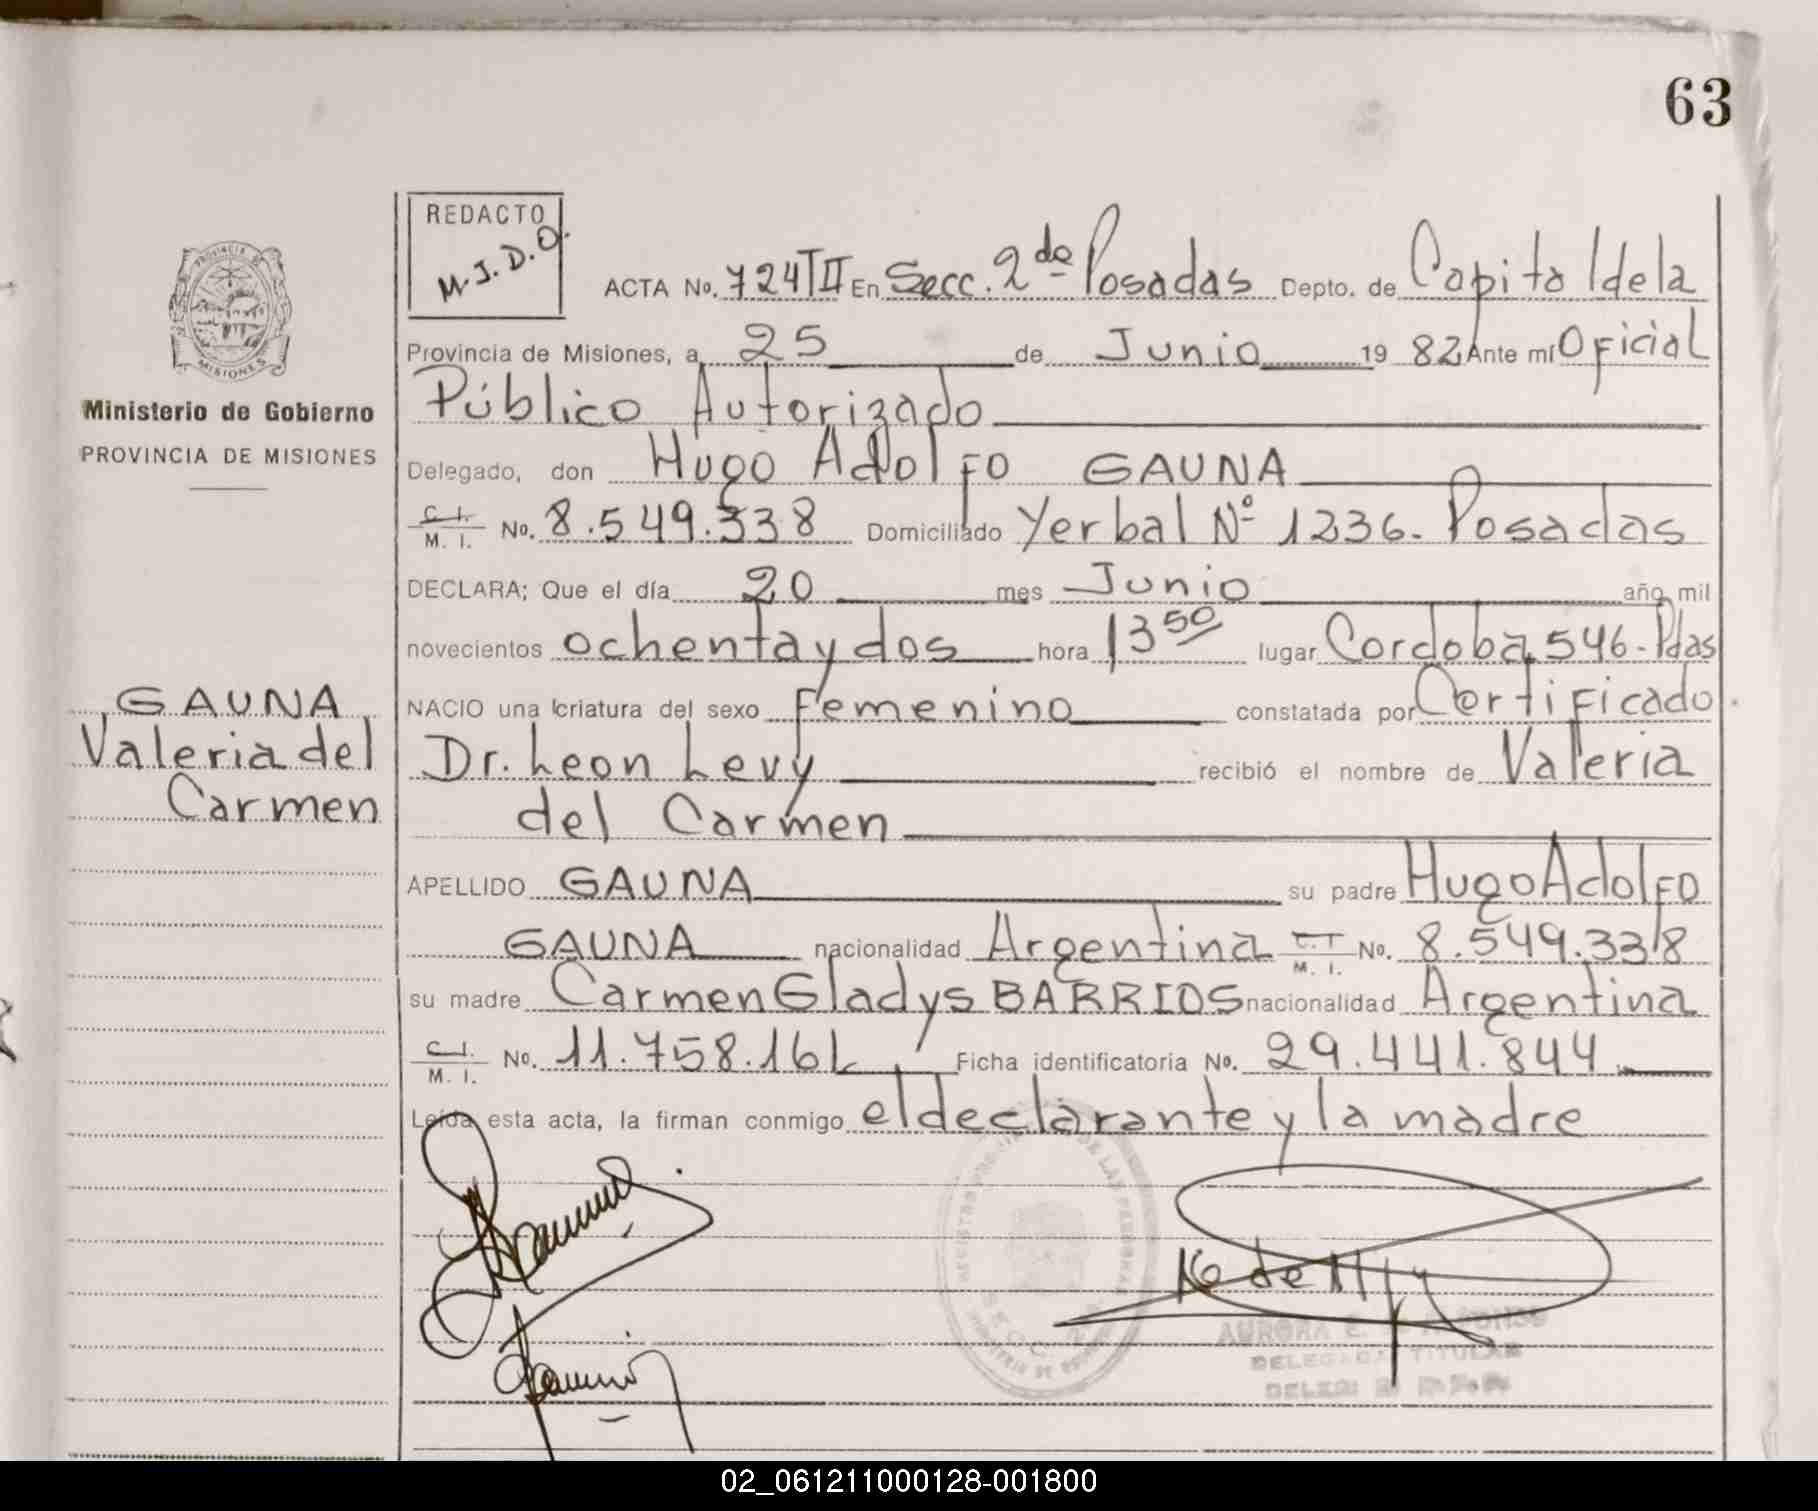 63
REDACTO
M.J.D.O.
ACTA No. 724TII En Secc. 2da Posadas Depto. de Capital de la
Provincia de Misiones, a 25 de Junio 19 82 Ante mí Oficial
Público Autorizado
Delegado, don Hugo Adolfo GAUNA
C. I. M. I. No. 8.549.338 Domiciliado Yerbal Nº 1236. Posadas
DECLARA; Que el día 20 mes Junio año mil
novecientos ochenta y dos hora 13 50 lugar Cordoba 546-Pdas
NACIO una criatura del sexo Femenino constatada por Certificado
Dr. Leon Levy recibió el nombre de Valeria
del Carmen
APELLIDO GAUNA su padre Hugo Adolfo
GAUNA nacionalidad Argentina C.I M. I. No. 8.549.338
su madre Carmen Gladys BARRIOS nacionalidad Argentina
C. I. M. I. No. 11.758.161 Ficha identificatoria No. 29.441.844
Leída esta acta, la firman conmigo el declarante y la madre
PROVINCIA DE
MISIONES
Ministerio de Gobierno
PROVINCIA DE MISIONES
GAUNA
Valeria del
Carmen
DE LAS PERSONAS
AURORA E.
DELEGADA TITULAR
02_061211000128-001800